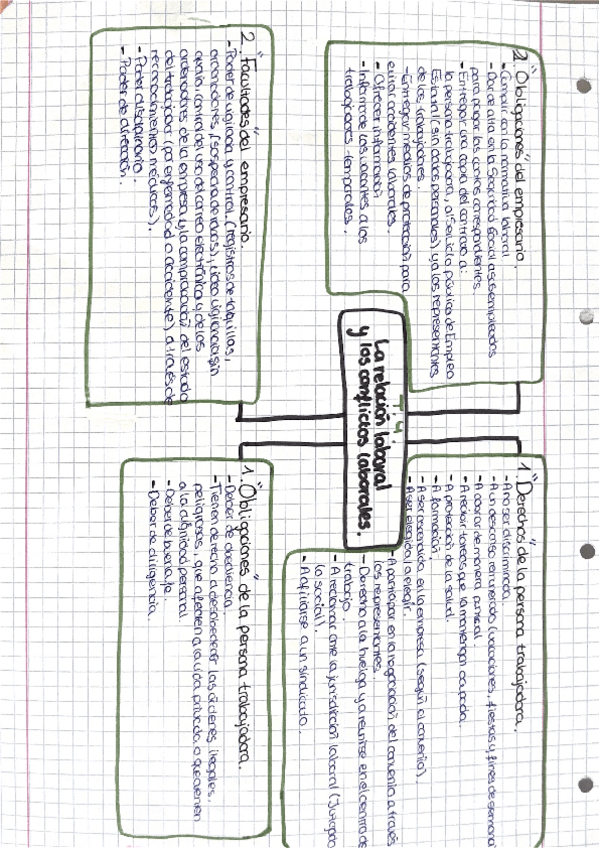 T.4.
La relación laboral
y los conflictos laborales.
1. "Derechos de la persona trabajadora.
- A no ser discriminada.
- A un descanso remunerado (vacaciones, fiestas y fines de semana
- A cobrar de manera puntual
- A realizar tareas que la mantengan ocupada.
- A protección de la salud.
- A formación.
- A ser ascendida en la empresa (según el convenio).
- A ser elegida/a elegir.
- A participar en la negociación del convenio a través
los representantes.
- Derecho a la huelga y a reunirse en el centro de
trabajo.
- A reclamar ante la jurisdicción laboral (Juzgado
lo social).
- A afiliarse a un sindicato.
1. "Obligaciones" de la persona trabajadora.
- Deber de obediencia.
- Tienen derecho a desobedecer las órdenes ilegales,
peligrosas, que afecten a la vida privada o que atenten
a la dignidad personal.
- Deber de buena fe.
- Deber de diligencia.
2. "Obligaciones" del empresario.
- Cumplir con la normativa laboral
- Dar de alta en la Seguridad Social a sus empleados
para pagar las cuotas correspondientes.
- Entregar una copia del contrato a:
la persona trabajadora, al Servicio Público de Empleo
Estatal (sin datos personales) y a los representantes
de los trabajadores.
- Entregar medios de protección para
evitar accidentes laborales.
- Ofrecer información
- Informar de las vacantes a los
trabajadores temporales.
2. "Facultades" del empresario.
- Poder de vigilancia y control. (registros de taquillas,
(sospecha de robos), video vigilancia sin
control del uso del correo electrónico y de los
ordenadores de la empresa y la comprobación del estado
del trabajador (por enfermedad o accidente) a través de
reconocimientos médicos).
- Poder disciplinario.
- Poder de dirección.